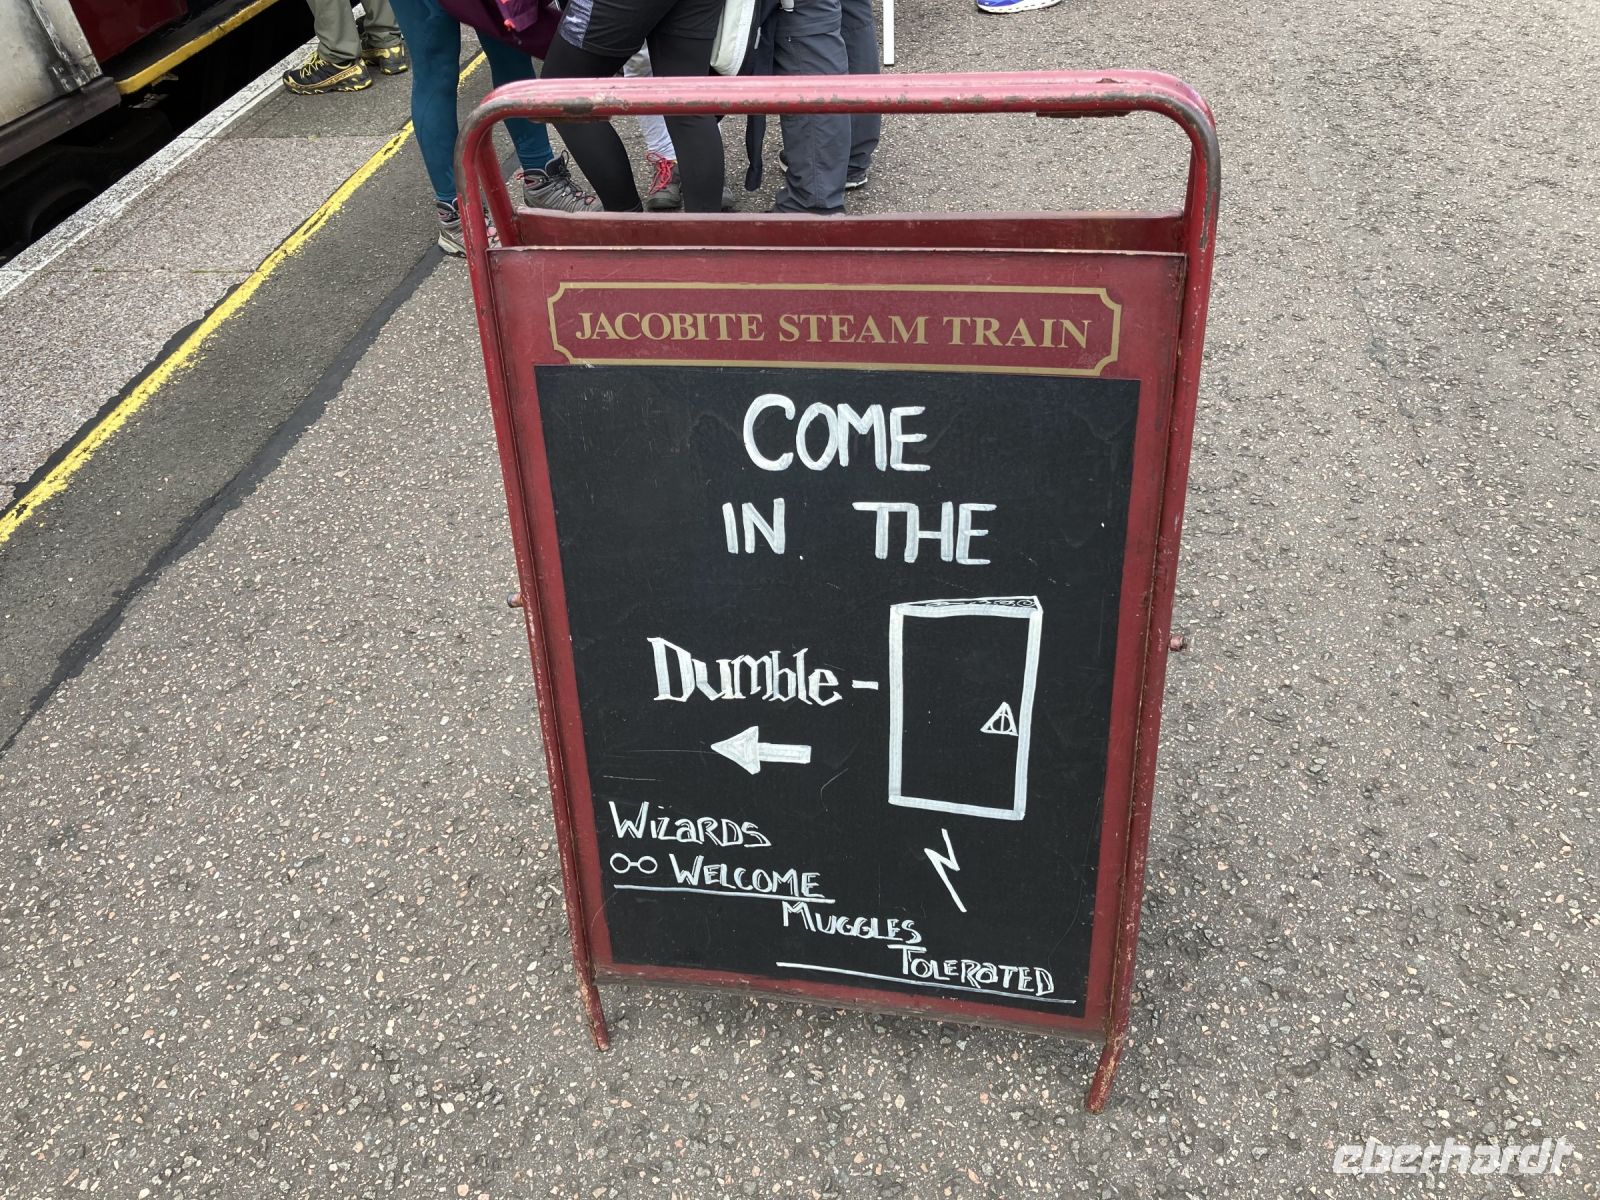 JACOBITE STEAM TRAIN
COME
IN THE
Dumble-
WIZARDS
WELCOME
MUGGLES
TOLERATED
eberhardt